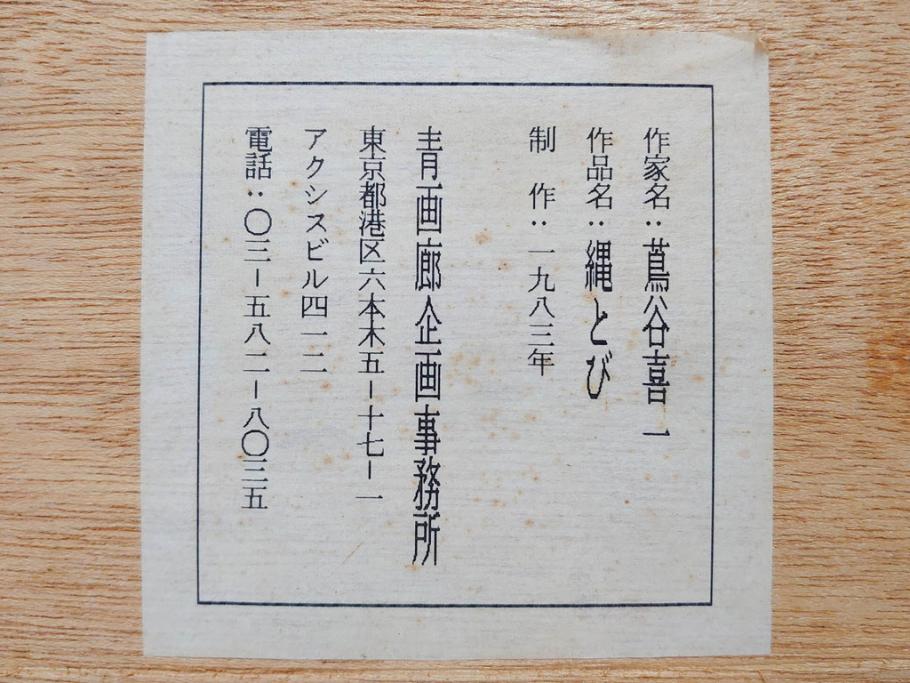 作家名:蔦谷喜一
作品名:縄とび
制 作:一九八三年
青画廊企画事務所
東京都港区六本木五ー十七ー一
アクシスビル四一二
電話:〇三ー五八二ー八〇三五